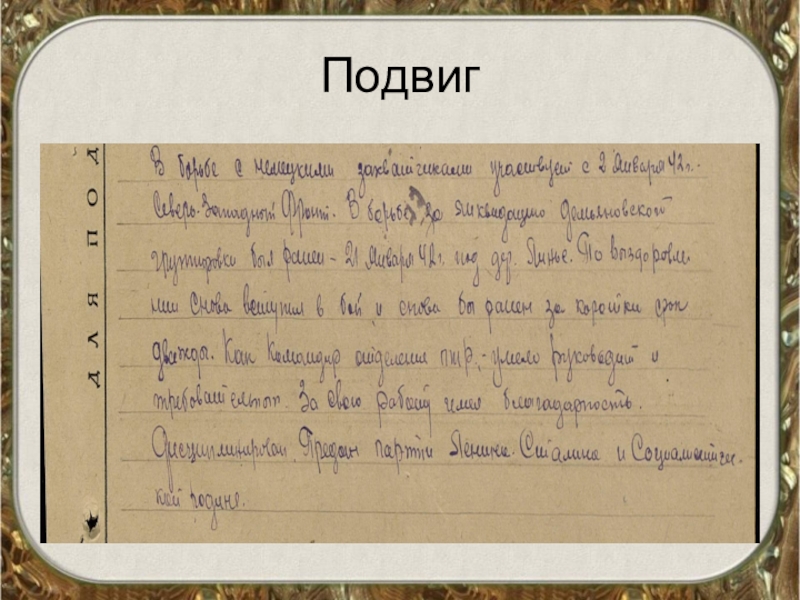 Подвиг
ДЛЯ ПОДП
В борьбе с немецкими захватчиками участвует с 2 Января 42 г. -
Северо-Западный Фронт. В борьбе за ликвидацию демьяновской
групировки был ранен - 21 Января 42 г. под дер. По выздоровле-
нии снова вступил в бой и снова бы ранен за короткий срок
дважды. Как Командир отделения - умело руководит и
требователен. За свою работу имел благодарность.
Дисциплинирован. Предан партии Ленина - Сталина и Социалистичес-
кой родине.